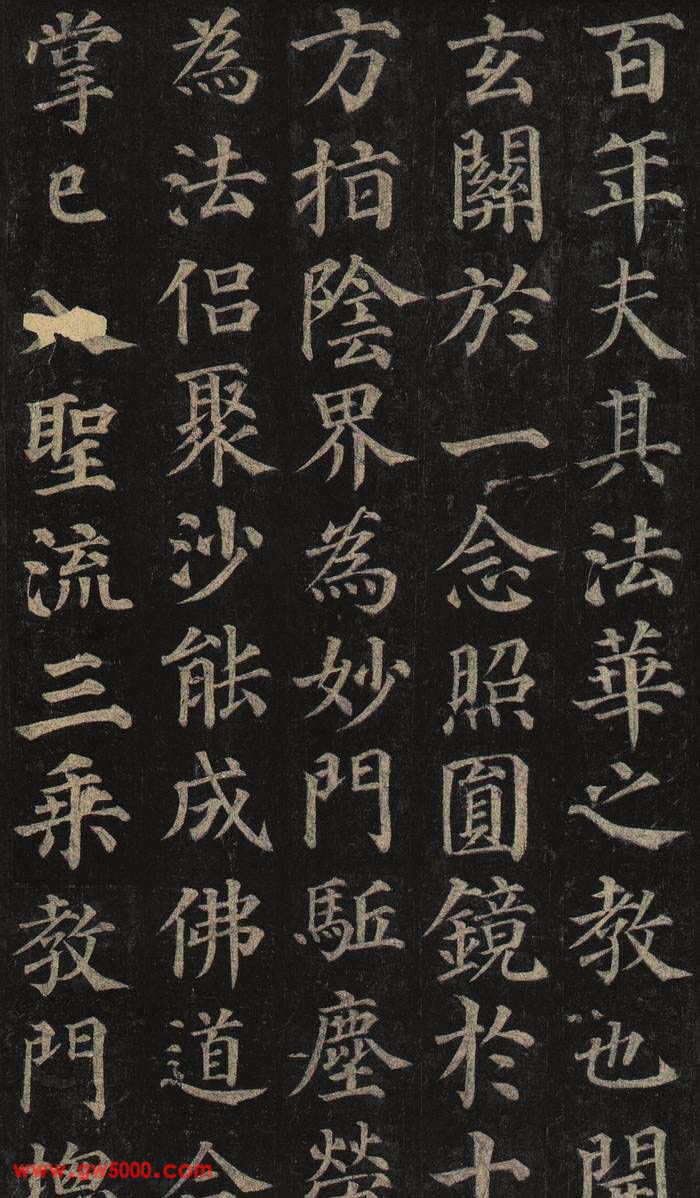 百年夫其法華之教也開
玄關於一念照圓鏡於十
方指陰界為妙門駈塵勞
為法侶聚沙能成佛道合
掌已入聖流三乗教門
www.gw5000.com